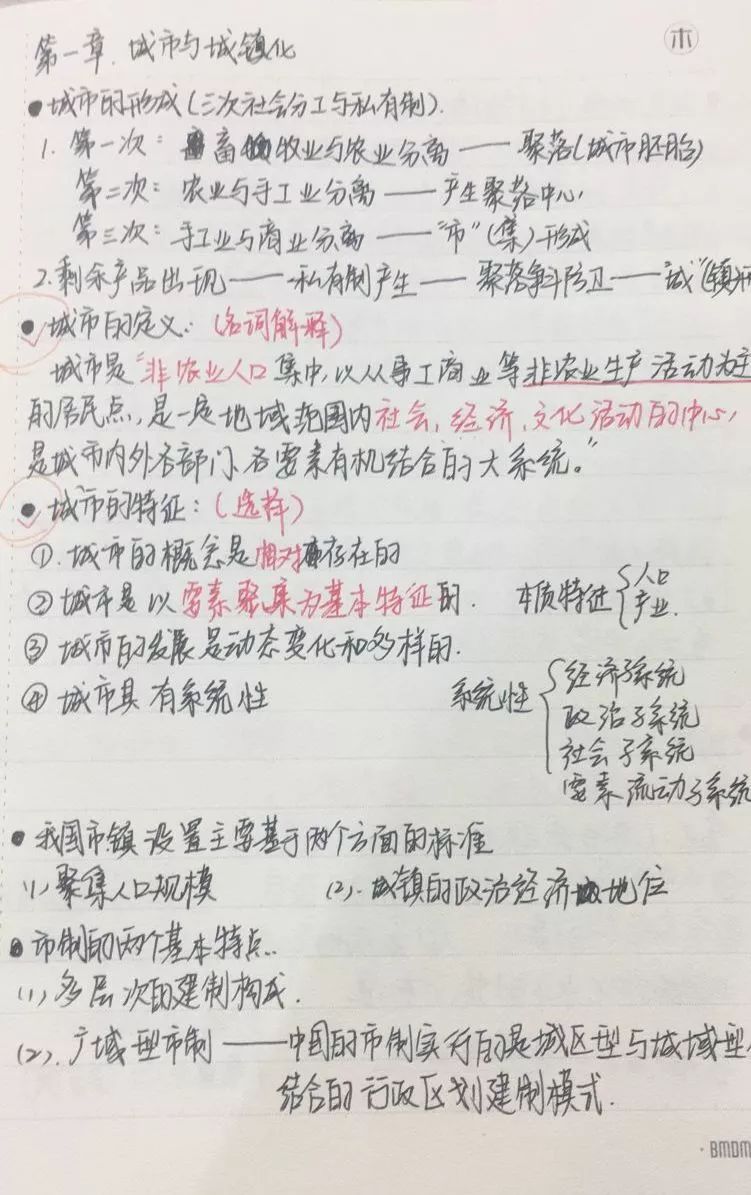 木
第一章. 城市与城镇化
●城市的形成(三次社会分工与私有制).
1. 第一次: 畜牧业与农业分离——聚落(城市胚胎)
第二次: 农业与手工业分离——产生聚落中心
第三次: 手工业与商业分离——"市"(集)形成
2.剩余产品出现——私有制产生——聚落争斗防卫——"城"(镇
●城市的定义: (名词解释)
城市是"非农业人口集中,以从事工商业等非农业生产活动为主
的居民点,是一定地域范围内社会,经济,文化活动的中心,
是城市内外各部门、各要素有机结合的大系统。"
●城市的特征: (选择)
①.城市的概念是相对存在的
②城市是以要素聚集为基本特征的. 本质特征{人口
产业.
③城市的发展是动态变化和多样的.
④城市具有系统性 系统性{经济子系统
政治子系统
社会子系统
要素流动子系统
●我国市镇设置主要基于两个方面的标准
(1)聚集人口规模 (2).城镇的政治经济地位
●市制的两个基本特点..
(1)多层次的建制构成.
(2).广域型市制——中国的市制实行的是城区型与城域型
结合的行政区划建制模式.
·BMDM